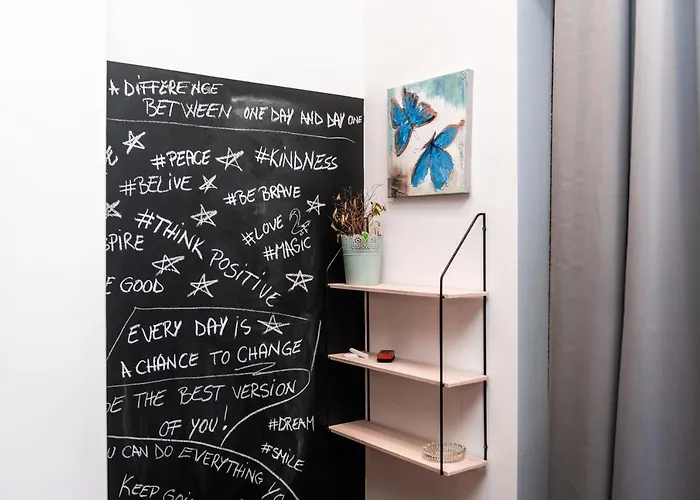 A DIFFERENCE
BETWEEN ONE DAY AND DAY ONE
#PEACE #KINDNESS
#BELIVE #BE BRAVE
#THINK POSITIVE
#LOVE
#MAGIC
SPIRE
GOOD
EVERY DAY IS
A CHANCE TO CHANGE
THE BEST VERSION
OF YOU!
#DREAM
#SMILE
CAN DO EVERYTHING
KEEP